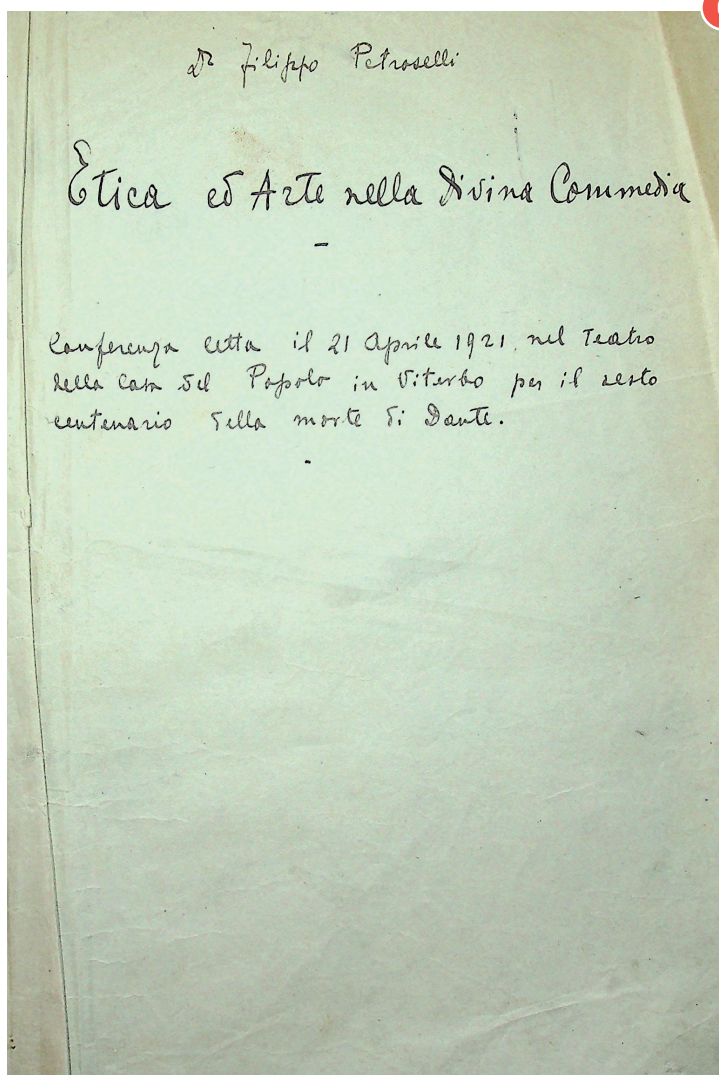 Dr Filippo Petroselli
Etica ed Arte nella Divina Commedia
Conferenza letta il 21 Aprile 1921 nel Teatro
della Casa del Popolo in Viterbo per il sesto
centenario della morte di Dante.